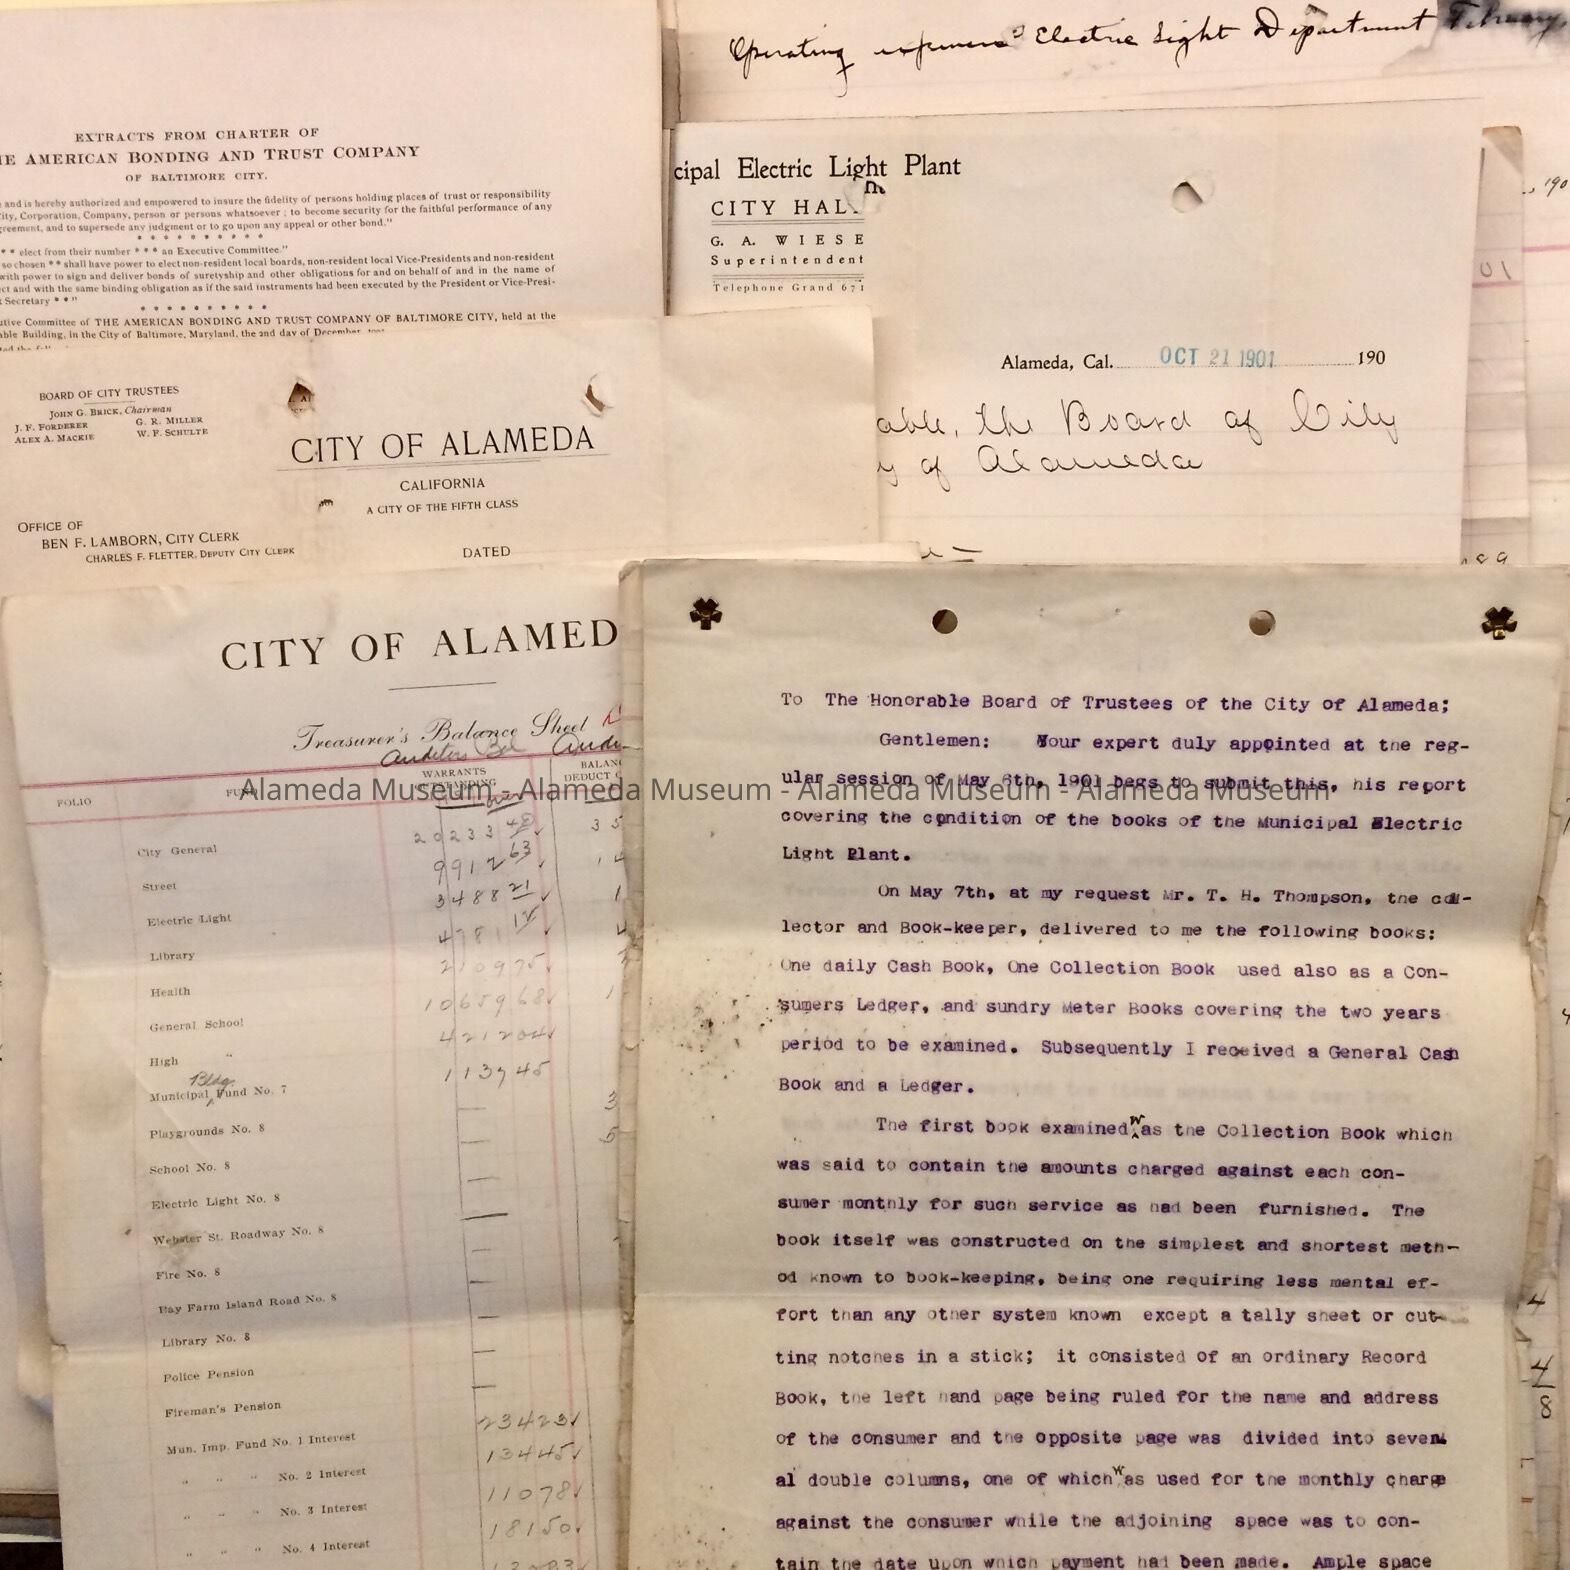 Operating expenses Electric Light Department February,
EXTRACTS FROM CHARTER OF
HE AMERICAN BONDING AND TRUST COMPANY
OF BALTIMORE CITY.
and is hereby authorized and empowered to insure the fidelity of persons holding places of trust or responsibility
ity, Corporation, Company, person or persons whatsoever ; to become security for the faithful performance of any
reement, and to supersede any judgment or to go upon any appeal or other bond."
* * * * * * * * * *
* * elect from their number * * * an Executive Committee."
so chosen * * shall have power to elect non-resident local boards, non-resident local Vice-Presidents and non-resident
with power to sign and deliver bonds of suretyship and other obligations for and on behalf of and in the name of
ct and with the same binding obligation as if the said instruments had been executed by the President or Vice-Presi-
t Secretary * * "
* * * * * * * * * *
utive Committee of THE AMERICAN BONDING AND TRUST COMPANY OF BALTIMORE CITY, held at the
able Building, in the City of Baltimore, Maryland, the 2nd day of December,
cipal Electric Light Plant
CITY HALL
G. A. WIESE
Superintendent
Telephone Grand 671
Alameda, Cal. OCT 21 1901 190
able, the Board of City
y of Alameda
BOARD OF CITY TRUSTEES
JOHN G. BRICK, Chairman
J. F. FORDERER G. R. MILLER
ALEX A. MACKIE W. F. SCHULTE
CITY OF ALAMEDA
CALIFORNIA
A CITY OF THE FIFTH CLASS
OFFICE OF
BEN F. LAMBORN, CITY CLERK
CHARLES F. FLETTER, DEPUTY CITY CLERK
DATED
CITY OF ALAMED
Treasurer's Balance Sheet
Auditors Bal
FOLIO FUND WARRANTS OUTSTANDING BALANC
DEDUCT
City General 20233 48
Street 9912 63
Electric Light 3488 21
Library 4781
Health 210975
General School 1065968
High " 421204
Municipal Bldg. Fund No. 7 113945
Playgrounds No. 8
School No. 8
Electric Light No. 8
Webster St. Roadway No. 8
Fire No. 8
Bay Farm Island Road No. 8
Library No. 8
Police Pension
Fireman's Pension
Mun. Imp. Fund No. 1 Interest 23423
" " " No. 2 Interest 13445
" " " No. 3 Interest 11078
" " " No. 4 Interest 18150
To The Honorable Board of Trustees of the City of Alameda;
Gentlemen: Your expert duly appointed at the reg-
ular session of May 6th, 1901 begs to submit this, his report
covering the condition of the books of the Municipal Electric
Light Plant.
On May 7th, at my request Mr. T. H. Thompson, the col-
lector and Book-keeper, delivered to me the following books:
One daily Cash Book, One Collection Book used also as a Con-
sumers Ledger, and sundry Meter Books covering the two years
period to be examined. Subsequently I received a General Cash
Book and a Ledger.
The first book examined was the Collection Book which
was said to contain the amounts charged against each con-
sumer monthly for such service as had been furnished. The
book itself was constructed on the simplest and shortest meth-
od known to book-keeping, being one requiring less mental ef-
fort than any other system known except a tally sheet or cut-
ting notches in a stick; it consisted of an ordinary Record
Book, the left hand page being ruled for the name and address
of the consumer and the opposite page was divided into sever
al double columns, one of which was used for the monthly charge
against the consumer while the adjoining space was to con-
tain the date upon which payment had been made. Ample space
Alameda Museum - Alameda Museum - Alameda Museum - Alameda Museum